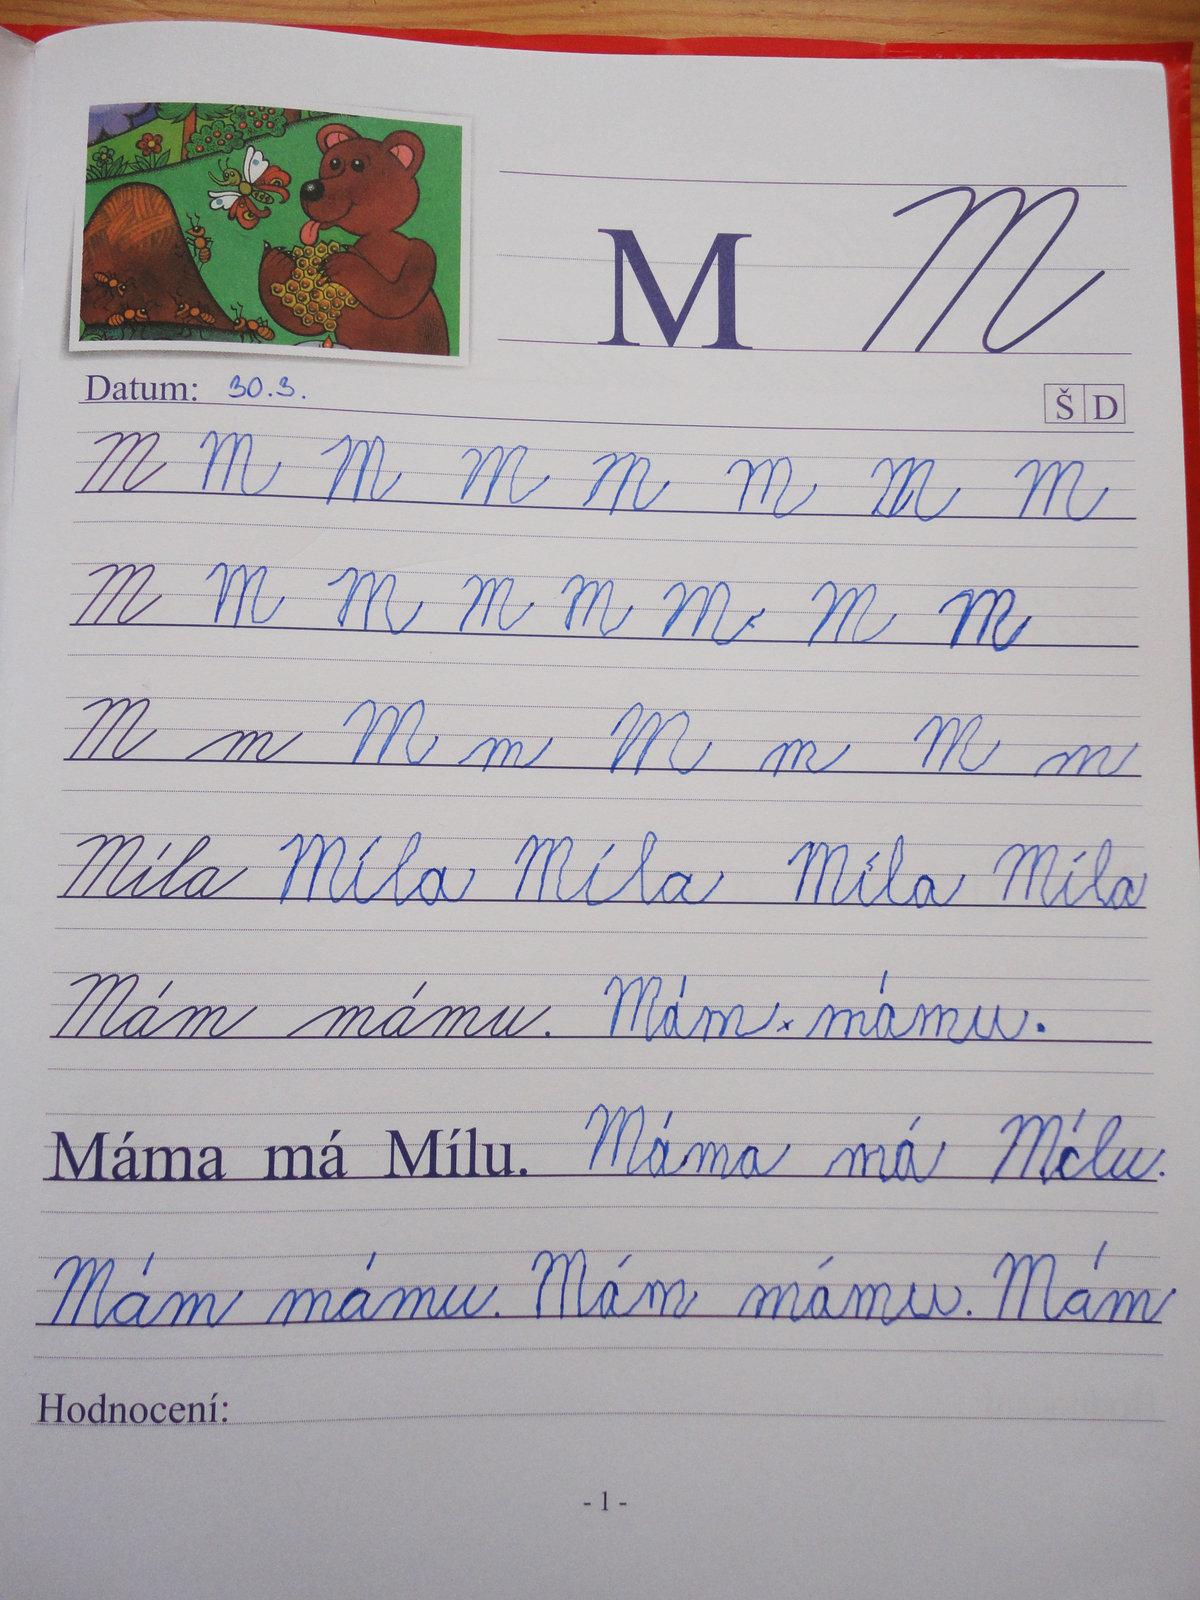 M M
Datum: 30.3.
Š D
M M M M M M M M
M M M M M M M M
M m M m M m M m
Míla Míla Míla Míla Míla
Mám mámu. Mám mámu.
Máma má Mílu. Máma má Mílu.
Mám mámu. Mám mámu. Mám
Hodnocení:
- 1 -